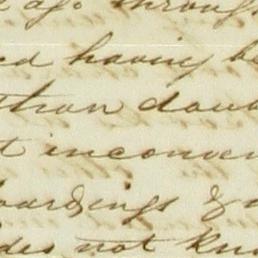 ago through
having be
than doub
t inconven
boardings &
does not kn